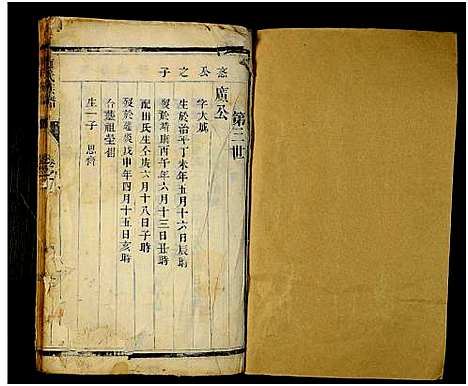 第三世
公之子
廣公
字大城
生於治平丁未年五月十六日辰時
歿於靖康丙午年六月十三日丑時
配田氏生仝庚六月十八日子時
歿於建炎戊申年四月十五日亥時
合葬祖塋側
生一子 思齊